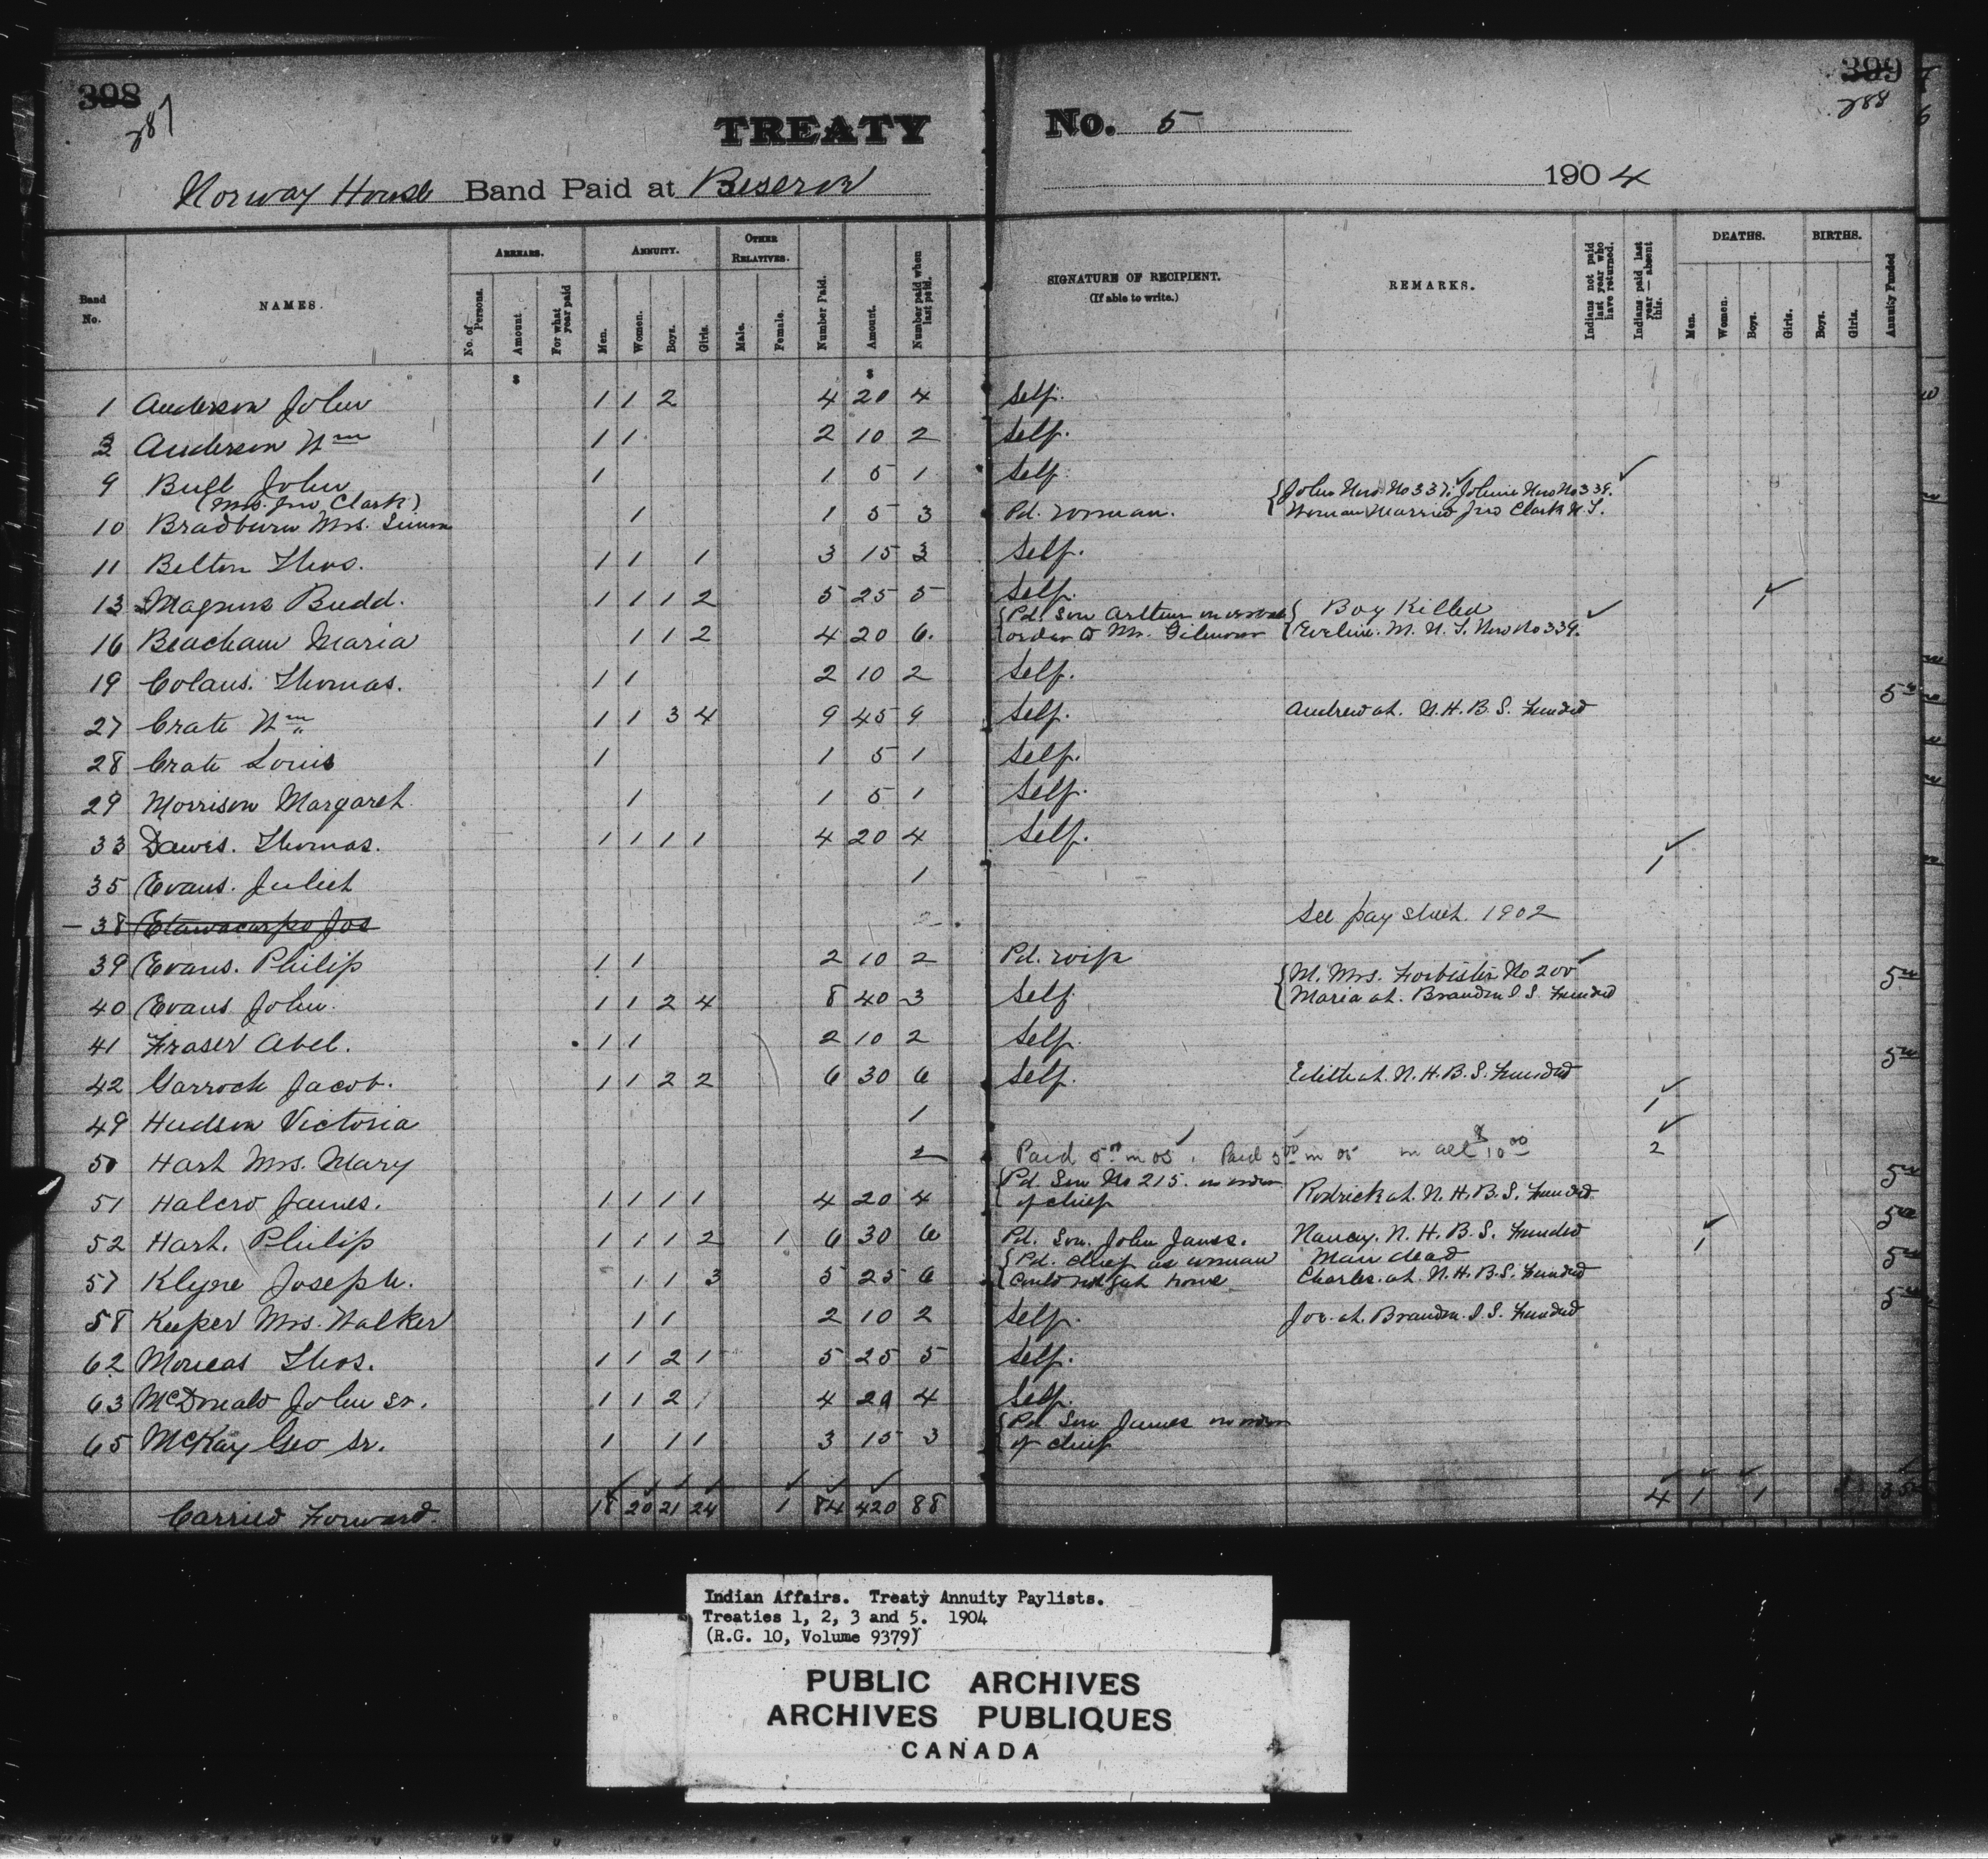 398 399
287 288
TREATY No. 5
Norway House Band Paid at Reserve 1904
Band No. NAMES. ARREARS. No. of Persons. Amount For what year paid ANNUITY. Men. Women. Boys. Girls. OTHER RELATIVES. Male. Female. Number Paid. Amount. Number paid when last paid. SIGNATURE OF RECIPIENT. (If able to write.) REMARKS. Indians not paid last year who have returned. Indians paid last year — absent this. DEATHS. Men. Women. Boys. Girls. BIRTHS. Boys. Girls. Annuity Funded
$ $
1 Anderson John 1 1 2 4 20 4 Self.
3 Anderson Wm 1 1 2 10 2 Self.
9 Budd John 1 1 5 1 Self.
(Mrs. Jno Clark) {John Now No 337; Johnie Now No 339.
10 Bradburn Mrs. 1 1 5 3 Pd. woman. Woman Married Jno Clark N.T.
11 Belton Thos. 1 1 1 3 15 3 Self.
13 Magnus Budd. 1 1 1 2 5 25 5 Self. 1
{Pd. Son Arthur on order { Boy Killed
16 Beacham Maria 1 1 2 4 20 6. order to Mr. Gilmour Eveline. M. N. T. Now No 339.
19 Colans. Thomas. 1 1 2 10 2 Self.
27 Crate Wm 1 1 3 4 9 45 9 Self. Andrew at. N. H. B. S. Funded 5
28 Crate Louis 1 1 5 1 Self.
29 Morrison Margaret 1 1 5 1 Self.
33 Dawes. Thomas. 1 1 1 1 4 20 4 Self.
35 Evans. Juliet 1 1
38 Etawacarpo Jos 2 See pay sheet. 1902
39 Evans. Philip 1 1 2 10 2 Pd. wife
{M. Mrs. Forbister No 200
40 Evans John. 1 1 2 4 8 40 3 Self Maria at. Brandon I. S. Funded 5
41 Fraser Abel. 1 1 2 10 2 Self.
42 Garrock Jacob. 1 1 2 2 6 30 6 Self. Edith at. N. H. B. S. Funded 5
49 Hudson Victoria 1 1
50 Hart Mrs. Mary 2 Paid 5 in 05. Paid 5 in 05 in all $10 2
{Pd. Son No 215. on order
51 Halcro James. 1 1 1 1 4 20 4 of chief Rodrick at. N. H. B. S. Funded. 5
52 Hart. Philip 1 1 1 2 1 6 30 6 Pd. Son. John James. Nancy. N. H. B. S. Funded 1 5
{Pd. chief as woman Man dead
57 Klyne Joseph. 1 1 3 5 25 6 could not get home Charles. at. N. H. B. S. Funded 5
58 Keeper Mrs. Walker 1 1 2 10 2 Self. Joe. at. Brandon. I. S. Funded 5
62 Moncas Thos. 1 1 2 1 5 25 5 Self.
63 McDonald John Sr. 1 1 2 4 20 4 Self.
{Pd. Son James on order
65 McKay Geo Sr. 1 1 1 3 15 3 of chief
Carried Forward. 18 20 21 24 1 84 420 88 4 1 1 35
Indian Affairs. Treaty Annuity Paylists.
Treaties 1, 2, 3 and 5. 1904
(R.G. 10, Volume 9379)
PUBLIC ARCHIVES
ARCHIVES PUBLIQUES
CANADA